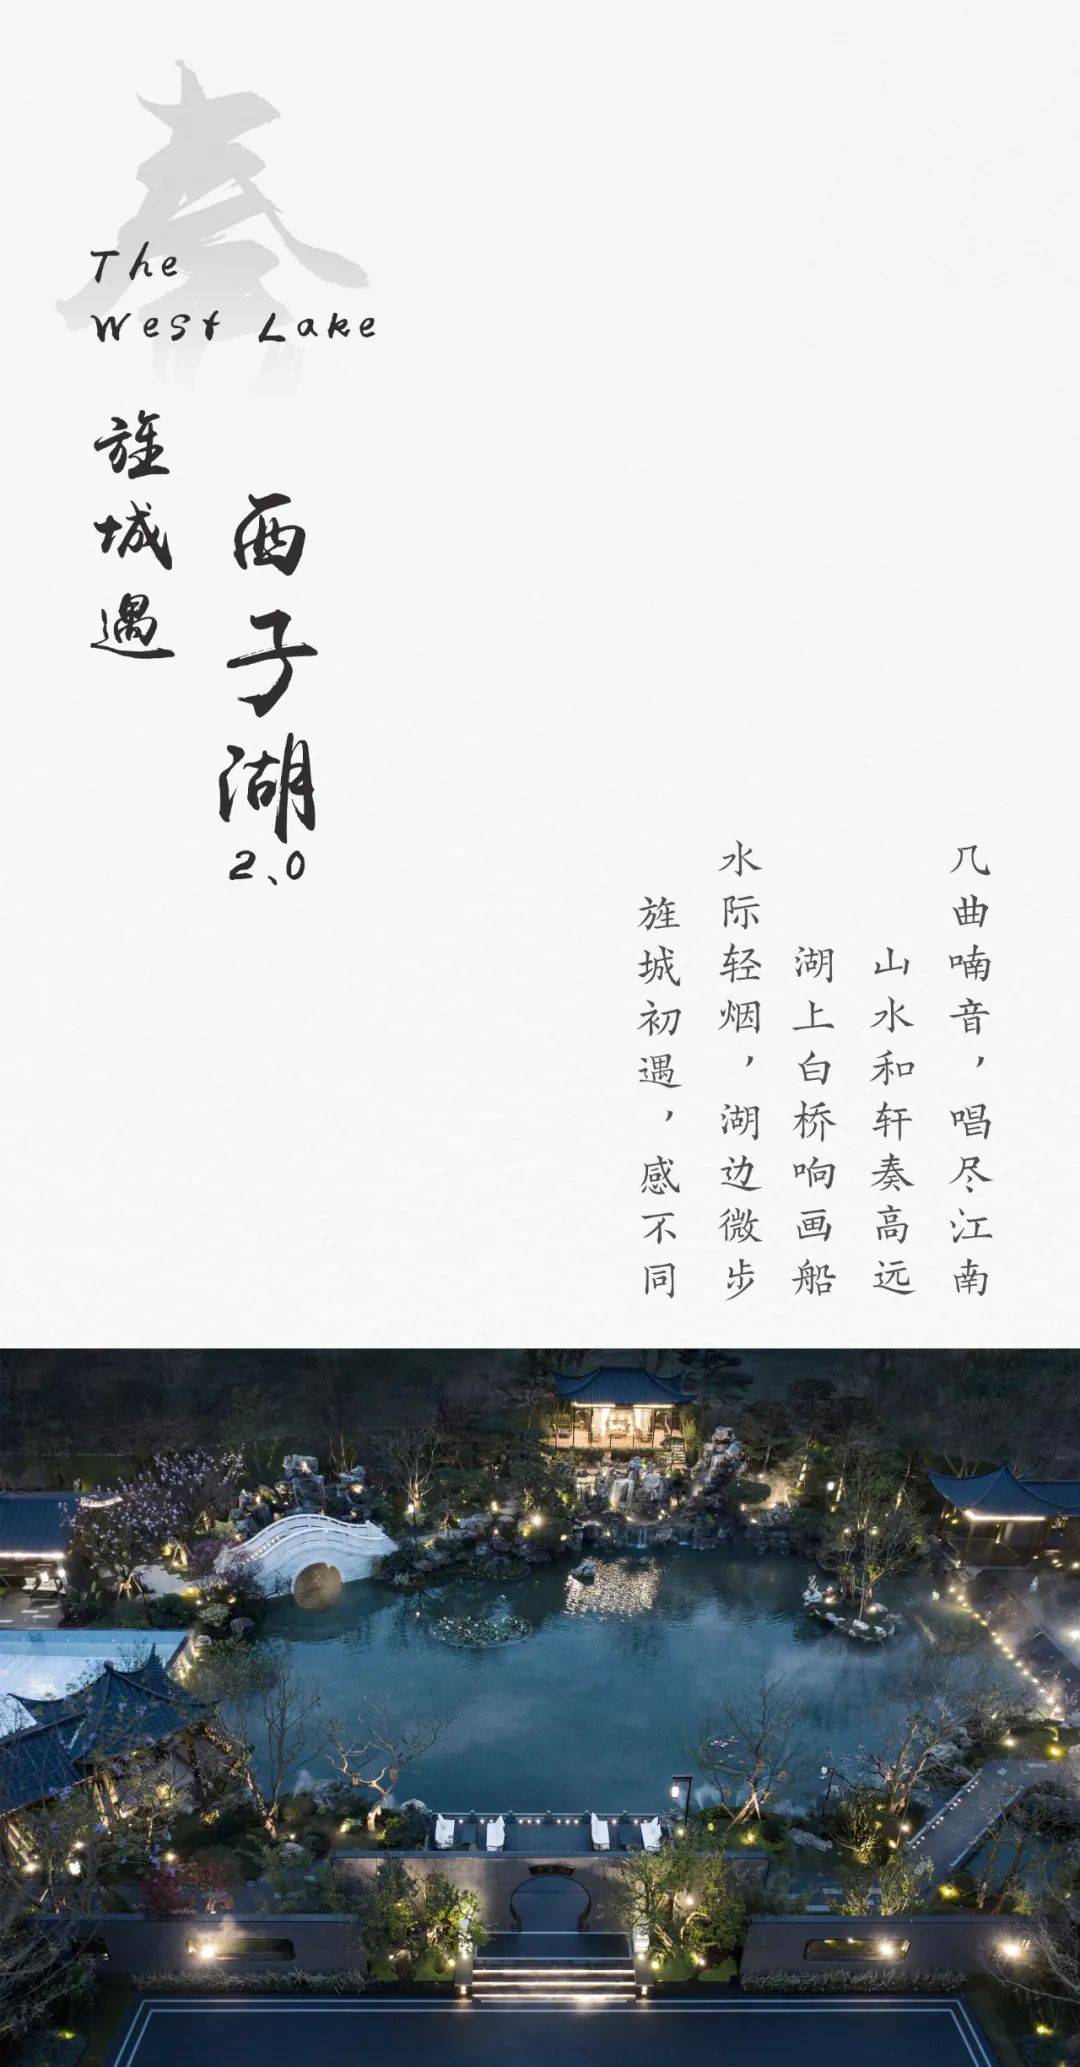 The
West Lake
旌城遇
西子湖
2.0
几曲喃音，唱尽江南
山水和轩奏高远
湖上白桥响画船
水际轻烟，湖边微步
旌城初遇，感不同